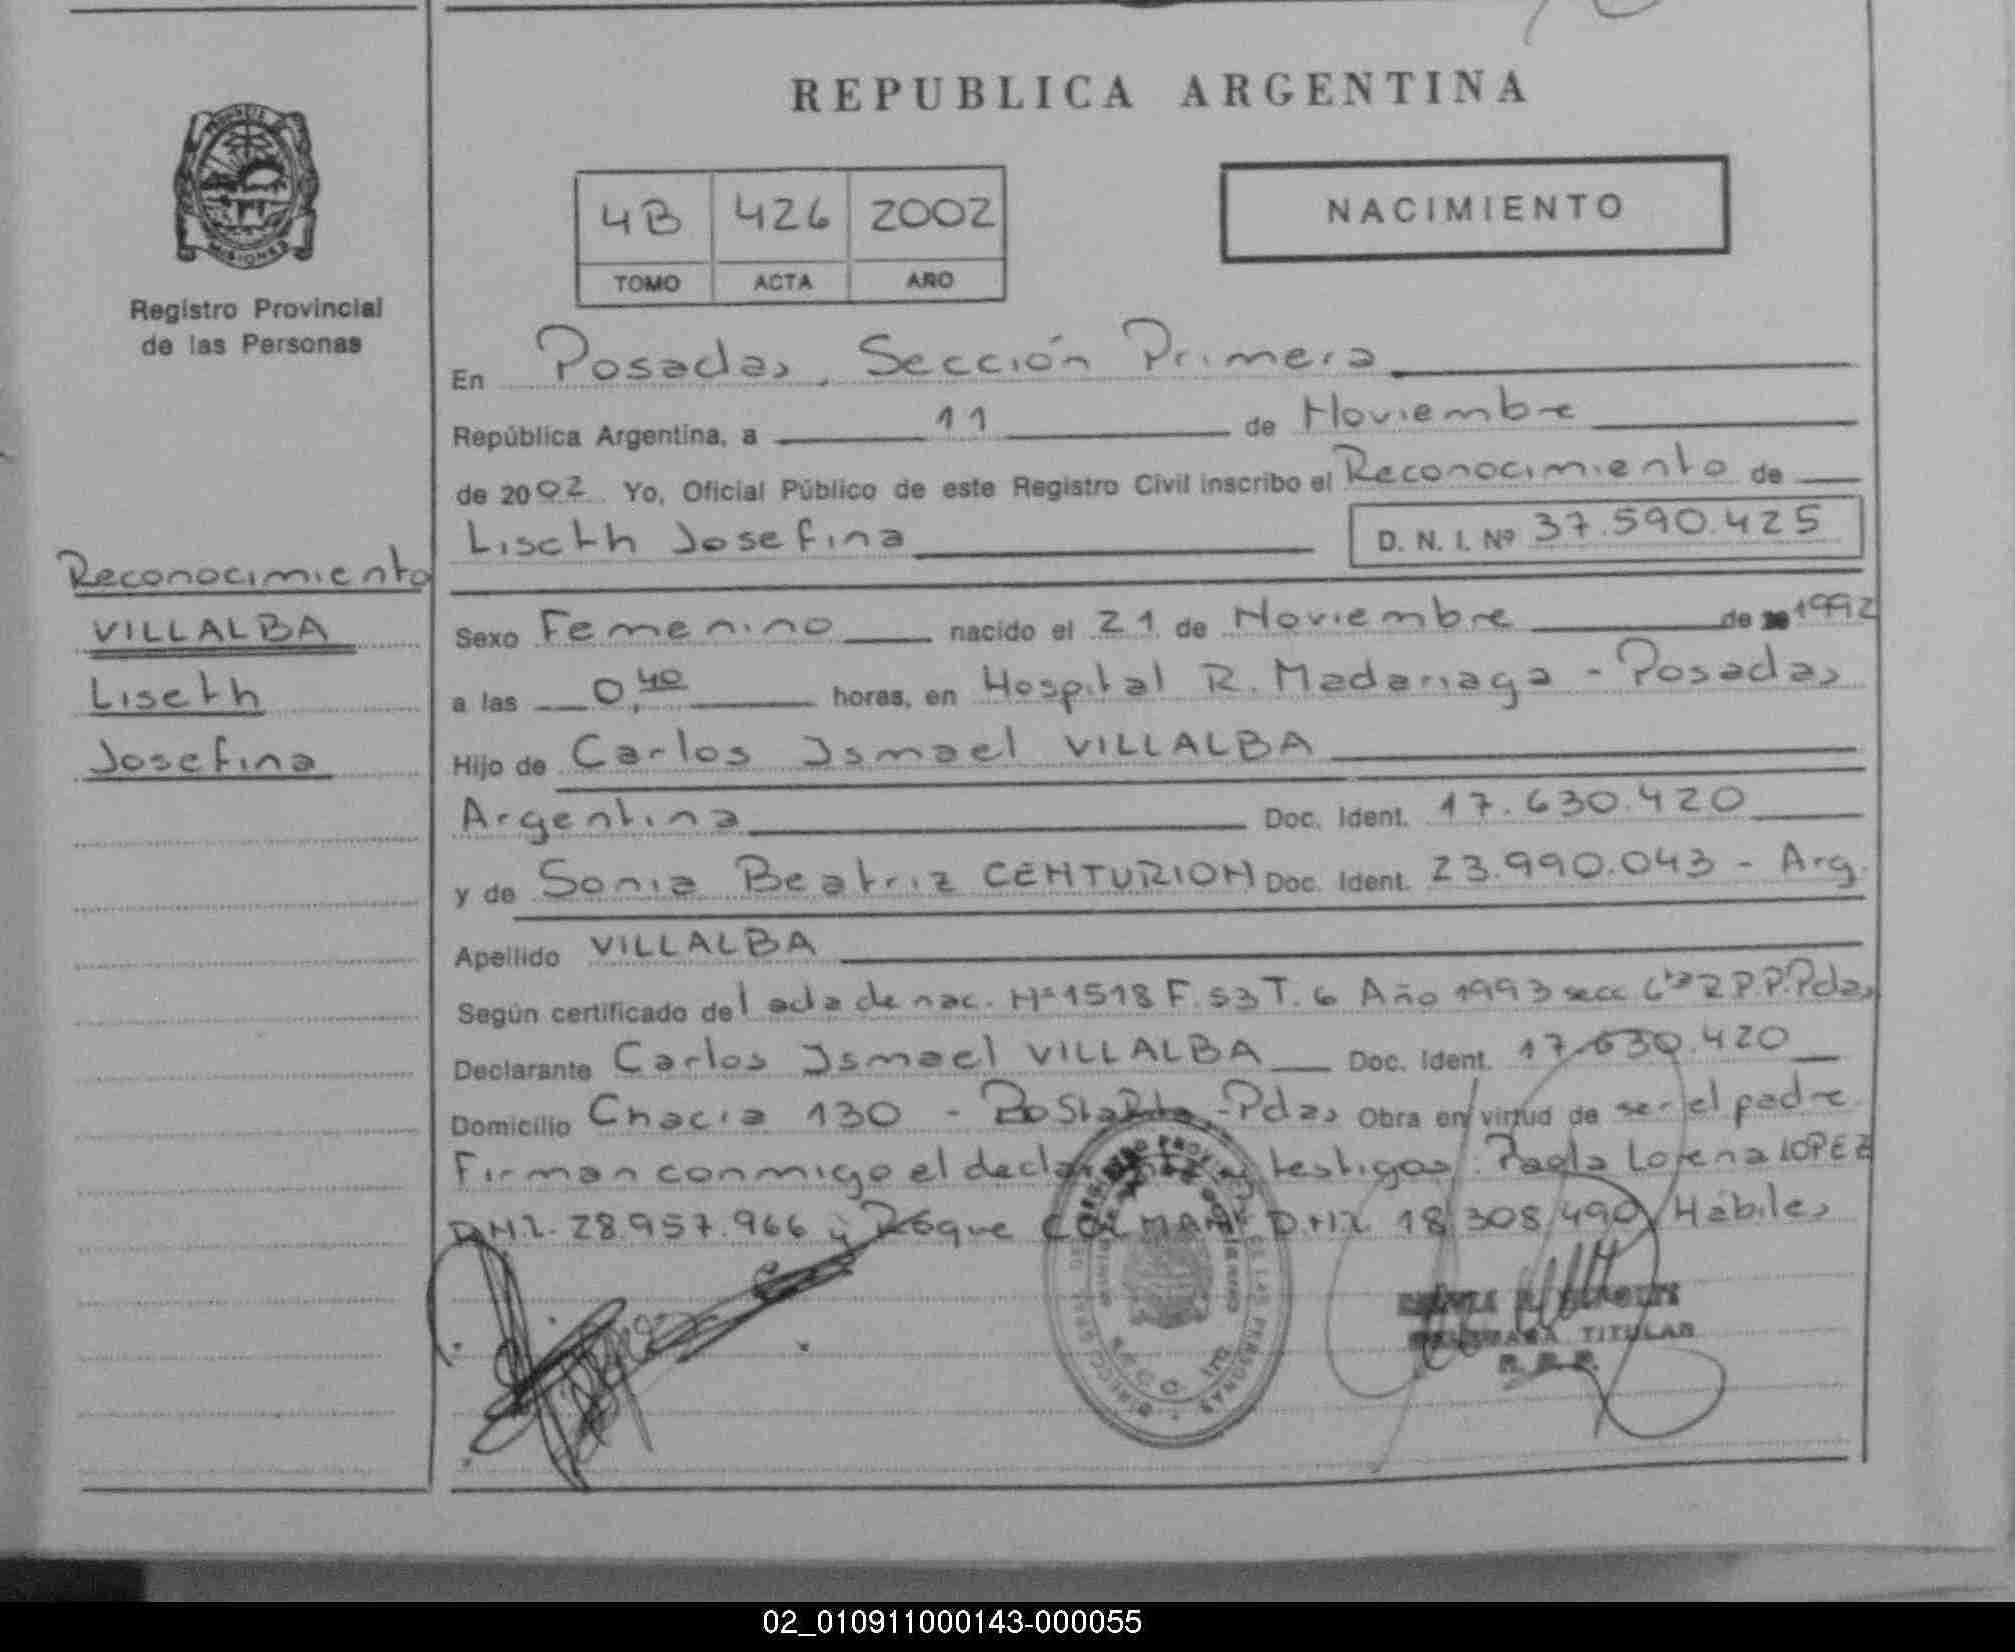 REPUBLICA ARGENTINA
PROVINCIA DE
MISIONES
Registro Provincial
de las Personas
4B 426 2002
TOMO ACTA AÑO
NACIMIENTO
En Posadas, Sección Primera
República Argentina, a 11 de Noviembre
de 2002 Yo, Oficial Público de este Registro Civil inscribo el Reconocimiento de
Liseth Josefina D. N. I. Nº 37.590.425
Reconocimiento
VILLALBA
Liseth
Josefina
Sexo Femenino nacido el 21 de Noviembre de 1992
a las 0,40 horas, en Hospital R. Madariaga - Posadas
Hijo de Carlos Ismael VILLALBA
Argentina Doc. Ident. 17.630.420
y de Sonia Beatriz CENTURION Doc. Ident. 23.990.043 - Arg.
Apellido VILLALBA
Según certificado del acta de nac. Nº 1518 F. 53 T. 6 Año 1993 secc 6ta R.P.P. Pdas
Declarante Carlos Ismael VILLALBA Doc. Ident. 17.630.420
Domicilio Chacra 130 - - Pdas Obra en virtud de ser el padre
Firman conmigo el testigos: Paola Lorena LOPEZ
D.N.I. 28.957.966 y Roque D.N.I. 18.308.490 Hábiles
TITULAR